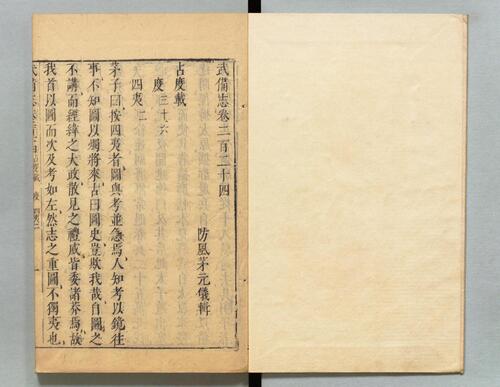 武備志卷二百二十四
防風茅元儀輯
占度載
度三十六
四夷二
茅子曰按四夷者圖與考並急焉人知考以鏡往
事不知圖以獨將來古曰圖史豈欺我哉自圖之
不講而經緯之大政散見之禮威皆委諸莽焉故
我首以圖而次及考如左然志之重圖不獨夷也